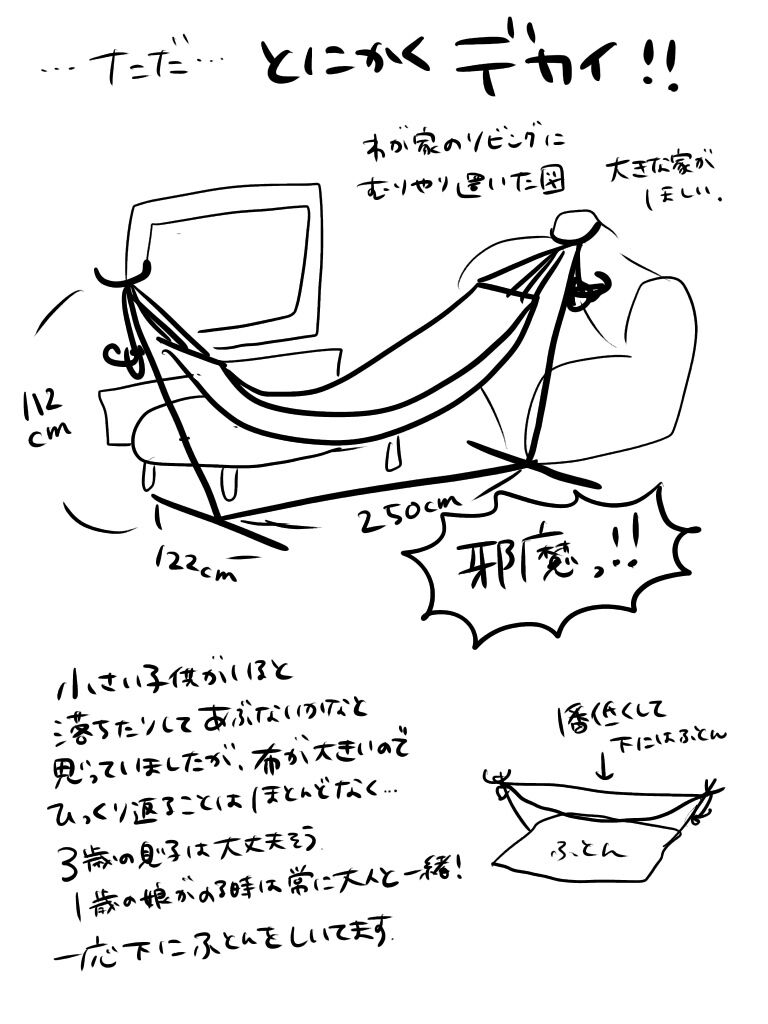 …ただ… とにかくデカイ!!
わが家のリビングに
むりやり置いた図
大きな家が
ほしい.
112
cm
250cm
122cm
邪魔っ!!
小さい子供がいると
落ちたりしてあぶないかなと
思っていましたが、布が大きいので
ひっくり返ることはほとんどなく…
3歳の息子は大丈夫そう.
1歳の娘がのる時は常に大人と一緒!
一応下にふとんをしいてます.
1番低くして
下にはふとん
ふとん